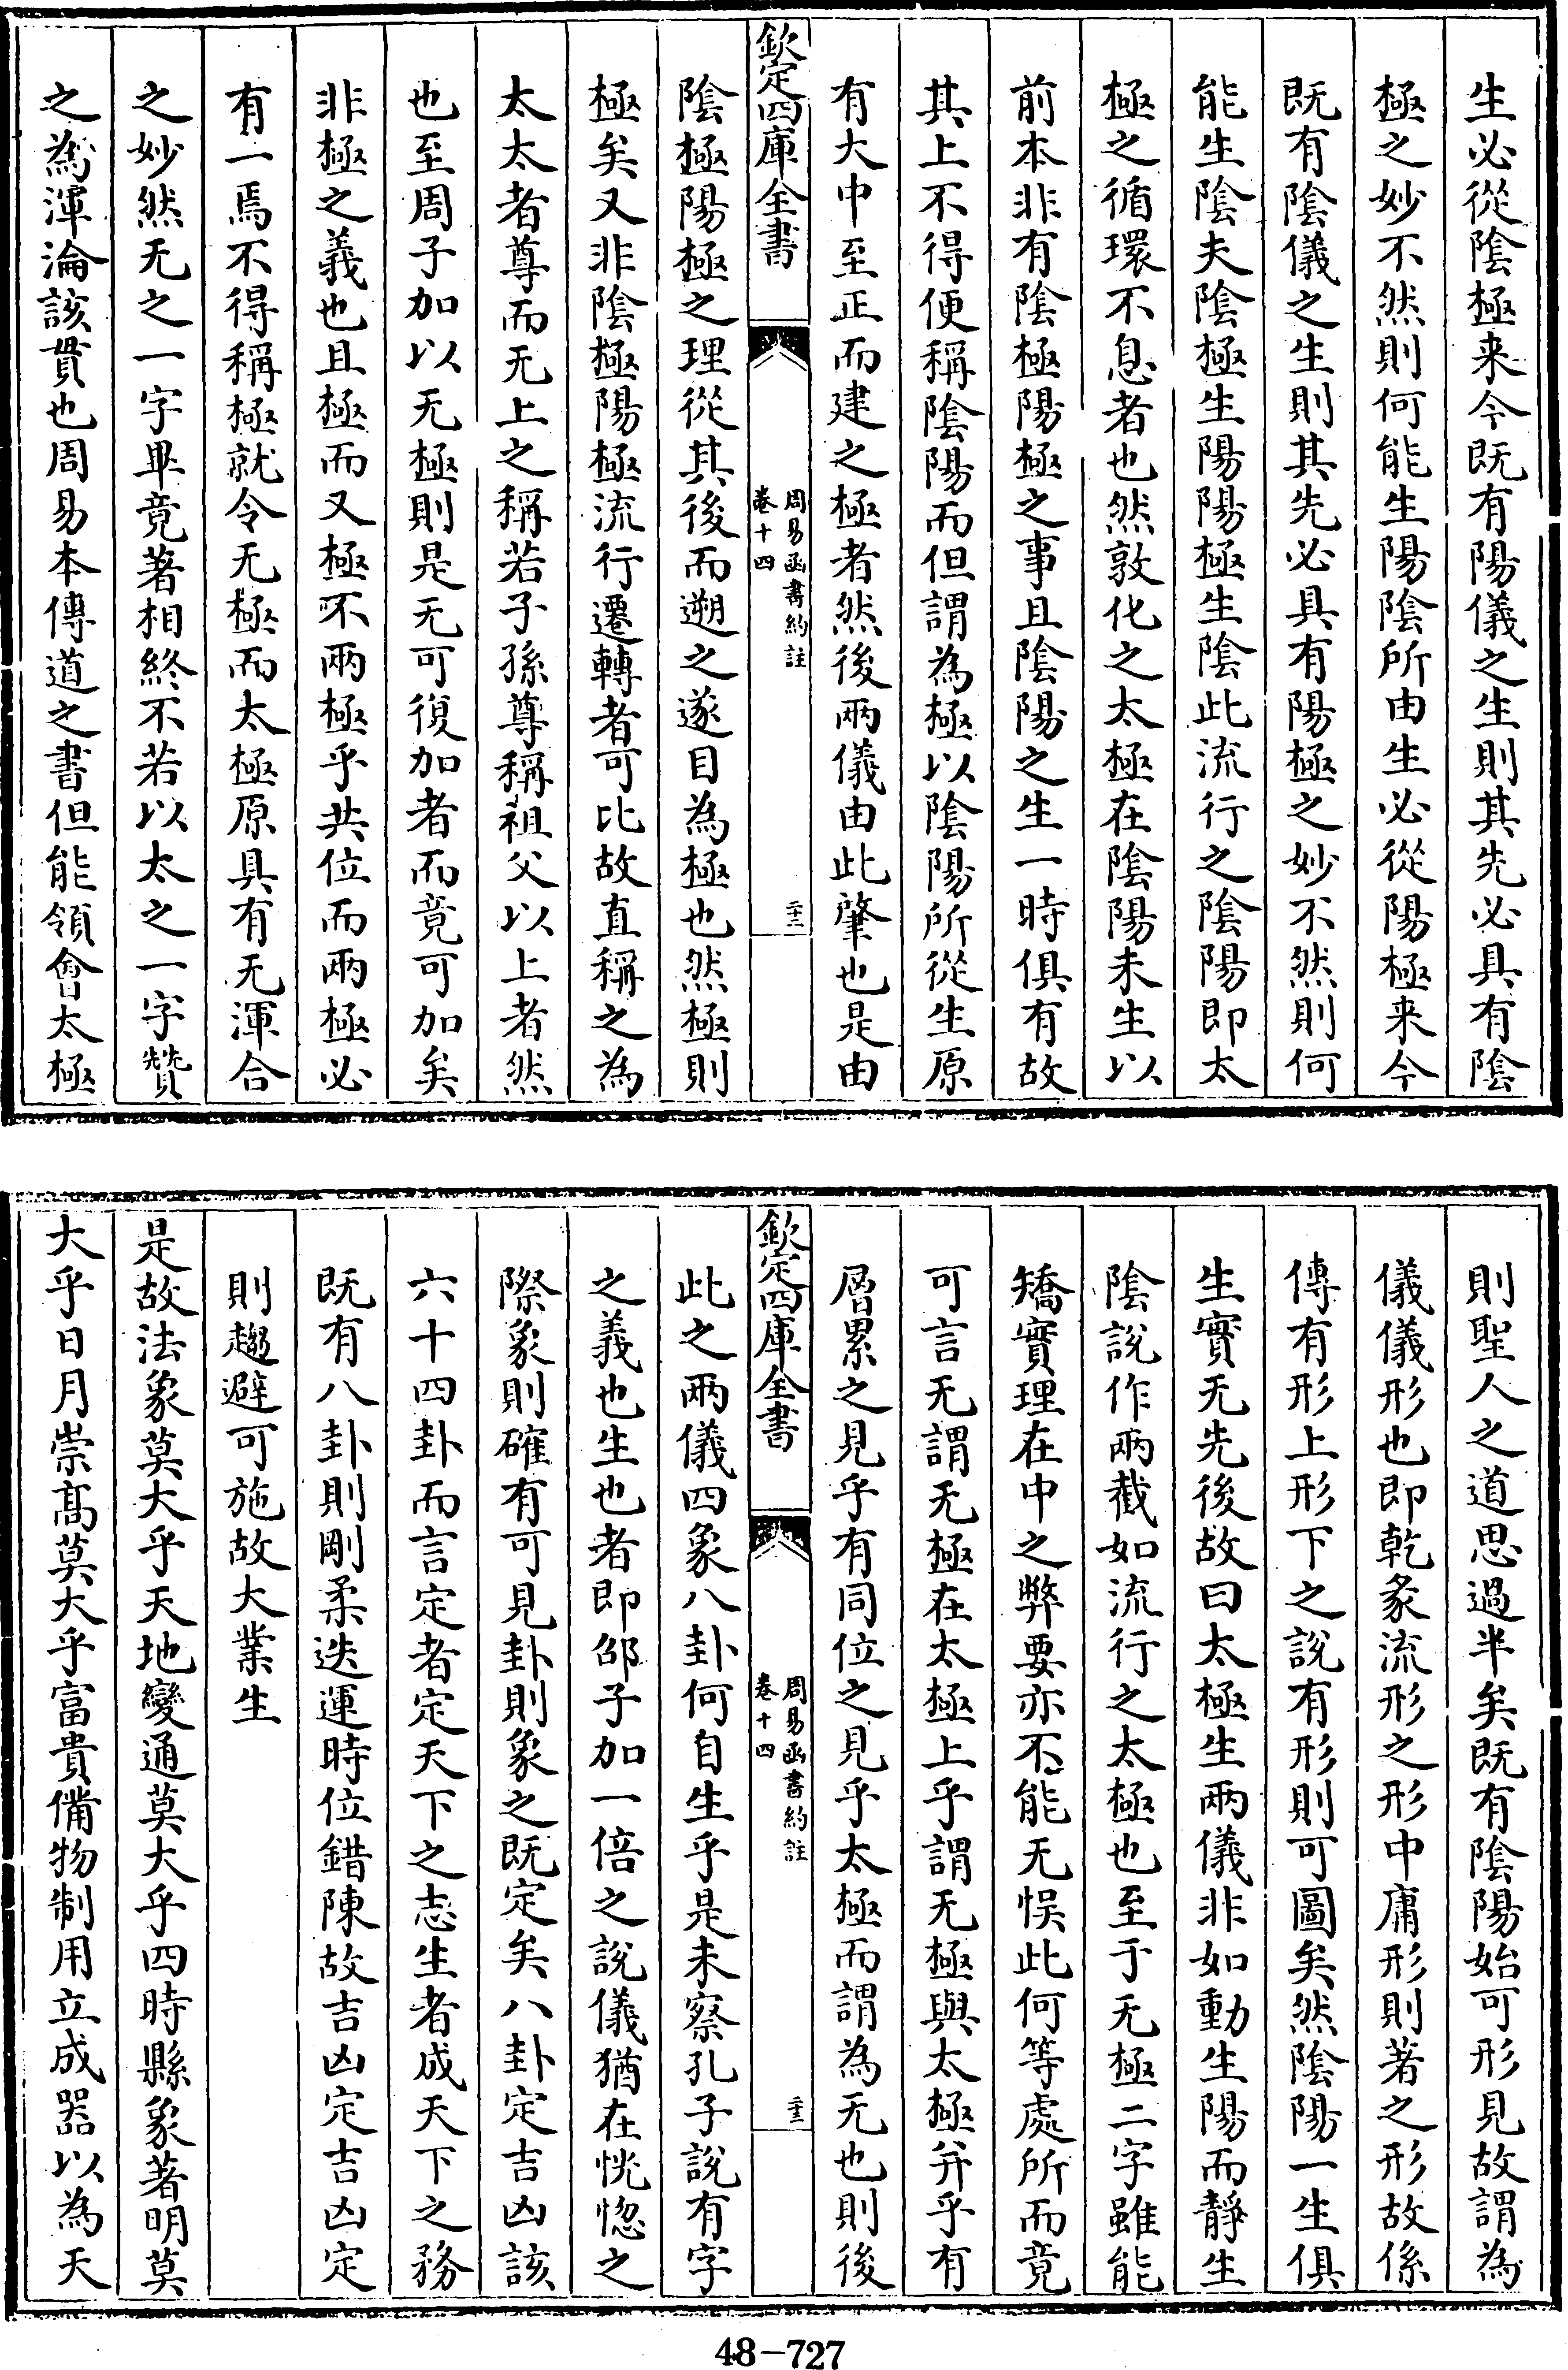 生必從陰極来今既有陽儀之生則其先必具有陰
極之妙不然則何能生陽陰所由生必從陽極来今
既有陰儀之生則其先必具有陽極之妙不然則何
能生陰夫陰極生陽陽極生陰此流行之陰陽即太
極之循環不息者也然敦化之太極在陰陽未生以
前本非有陰極陽極之事且陰陽之生一時俱有故
其上不得便稱陰陽而但謂為極以陰陽所從生原
有大中至正而建之極者然後兩儀由此肇也是由
欽定四庫全書
周易函書約註
卷十四
二十三
陰極陽極之理從其後而遡之遂目為極也然極則
極矣又非陰極陽極流行遷轉者可比故直稱之為
太太者尊而无上之稱若子孫尊稱祖父以上者然
也至周子加以无極則是无可復加者而竟可加矣
非極之義也且極而又極不兩極乎共位而兩極必
有一焉不得稱極就令无極而太極原具有无渾合
之妙然无之一字畢竟著相終不若以太之一字贊
之為渾淪該貫也周易本傳道之書但能領會太極
則聖人之道思過半矣既有陰陽始可形見故謂為
儀儀形也即乾彖流形之形中庸形則著之形故係
傳有形上形下之說有形則可圖矣然陰陽一生俱
生實无先後故曰太極生兩儀非如動生陽而靜生
陰說作兩截如流行之太極也至于无極二字雖能
矯實理在中之弊要亦不能无悞此何等處所而竟
可言无謂无極在太極上乎謂无極與太極并乎有
層累之見乎有同位之見乎太極而謂為无也則後
欽定四庫全書
周易函書約註
卷十四
二十三
此之兩儀四象八卦何自生乎是未察孔子說有字
之義也生也者即邵子加一倍之說儀猶在恍惚之
際象則確有可見卦則象之既定矣八卦定吉凶該
六十四卦而言定者定天下之志生者成天下之務
既有八卦則剛柔迭運時位錯陳故吉凶定吉凶定
則趨避可施故大業生
是故法象莫大乎天地變通莫大乎四時縣象著明莫
大乎日月崇髙莫大乎富貴備物制用立成器以為天
48-727